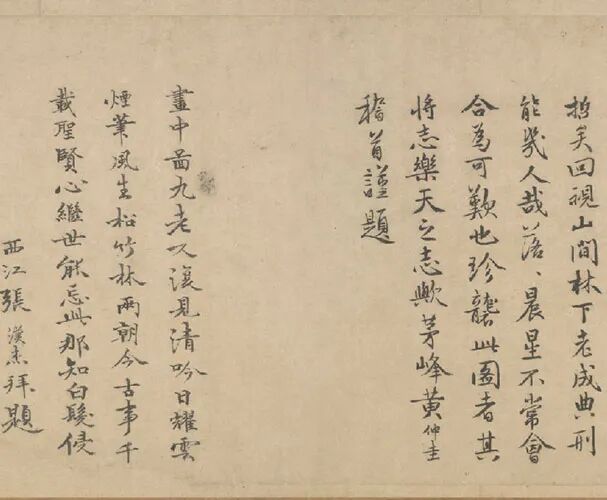 哲矣回視山間林下老成典刑
能幾人哉落〻晨星不常會
合為可歎也珍襲此圖者其
將志樂天之志歟茅峰黃仲圭
稽首謹題
畫中啚九老又復見清吟日耀雲
煙筆風生松竹林兩朝今古事千
載聖賢心繼世能忘此那知白髮侵
西江張漢杰拜題